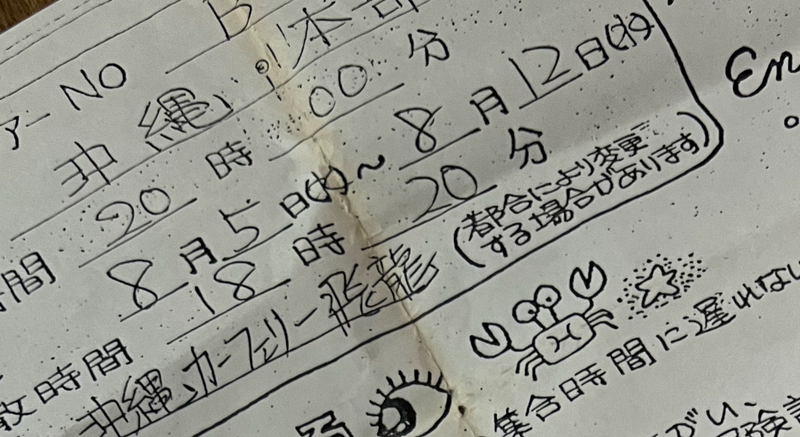 ァー NO B
沖縄, 本部
20 時 00 分
8 月 5 日(水)〜 8 月 12 日(水)
時間 18 時 20 分
散時間
沖縄, カーフェリー飛龍
(都合により変更
する場合があります)
En
集合時間に遅れない
がい、